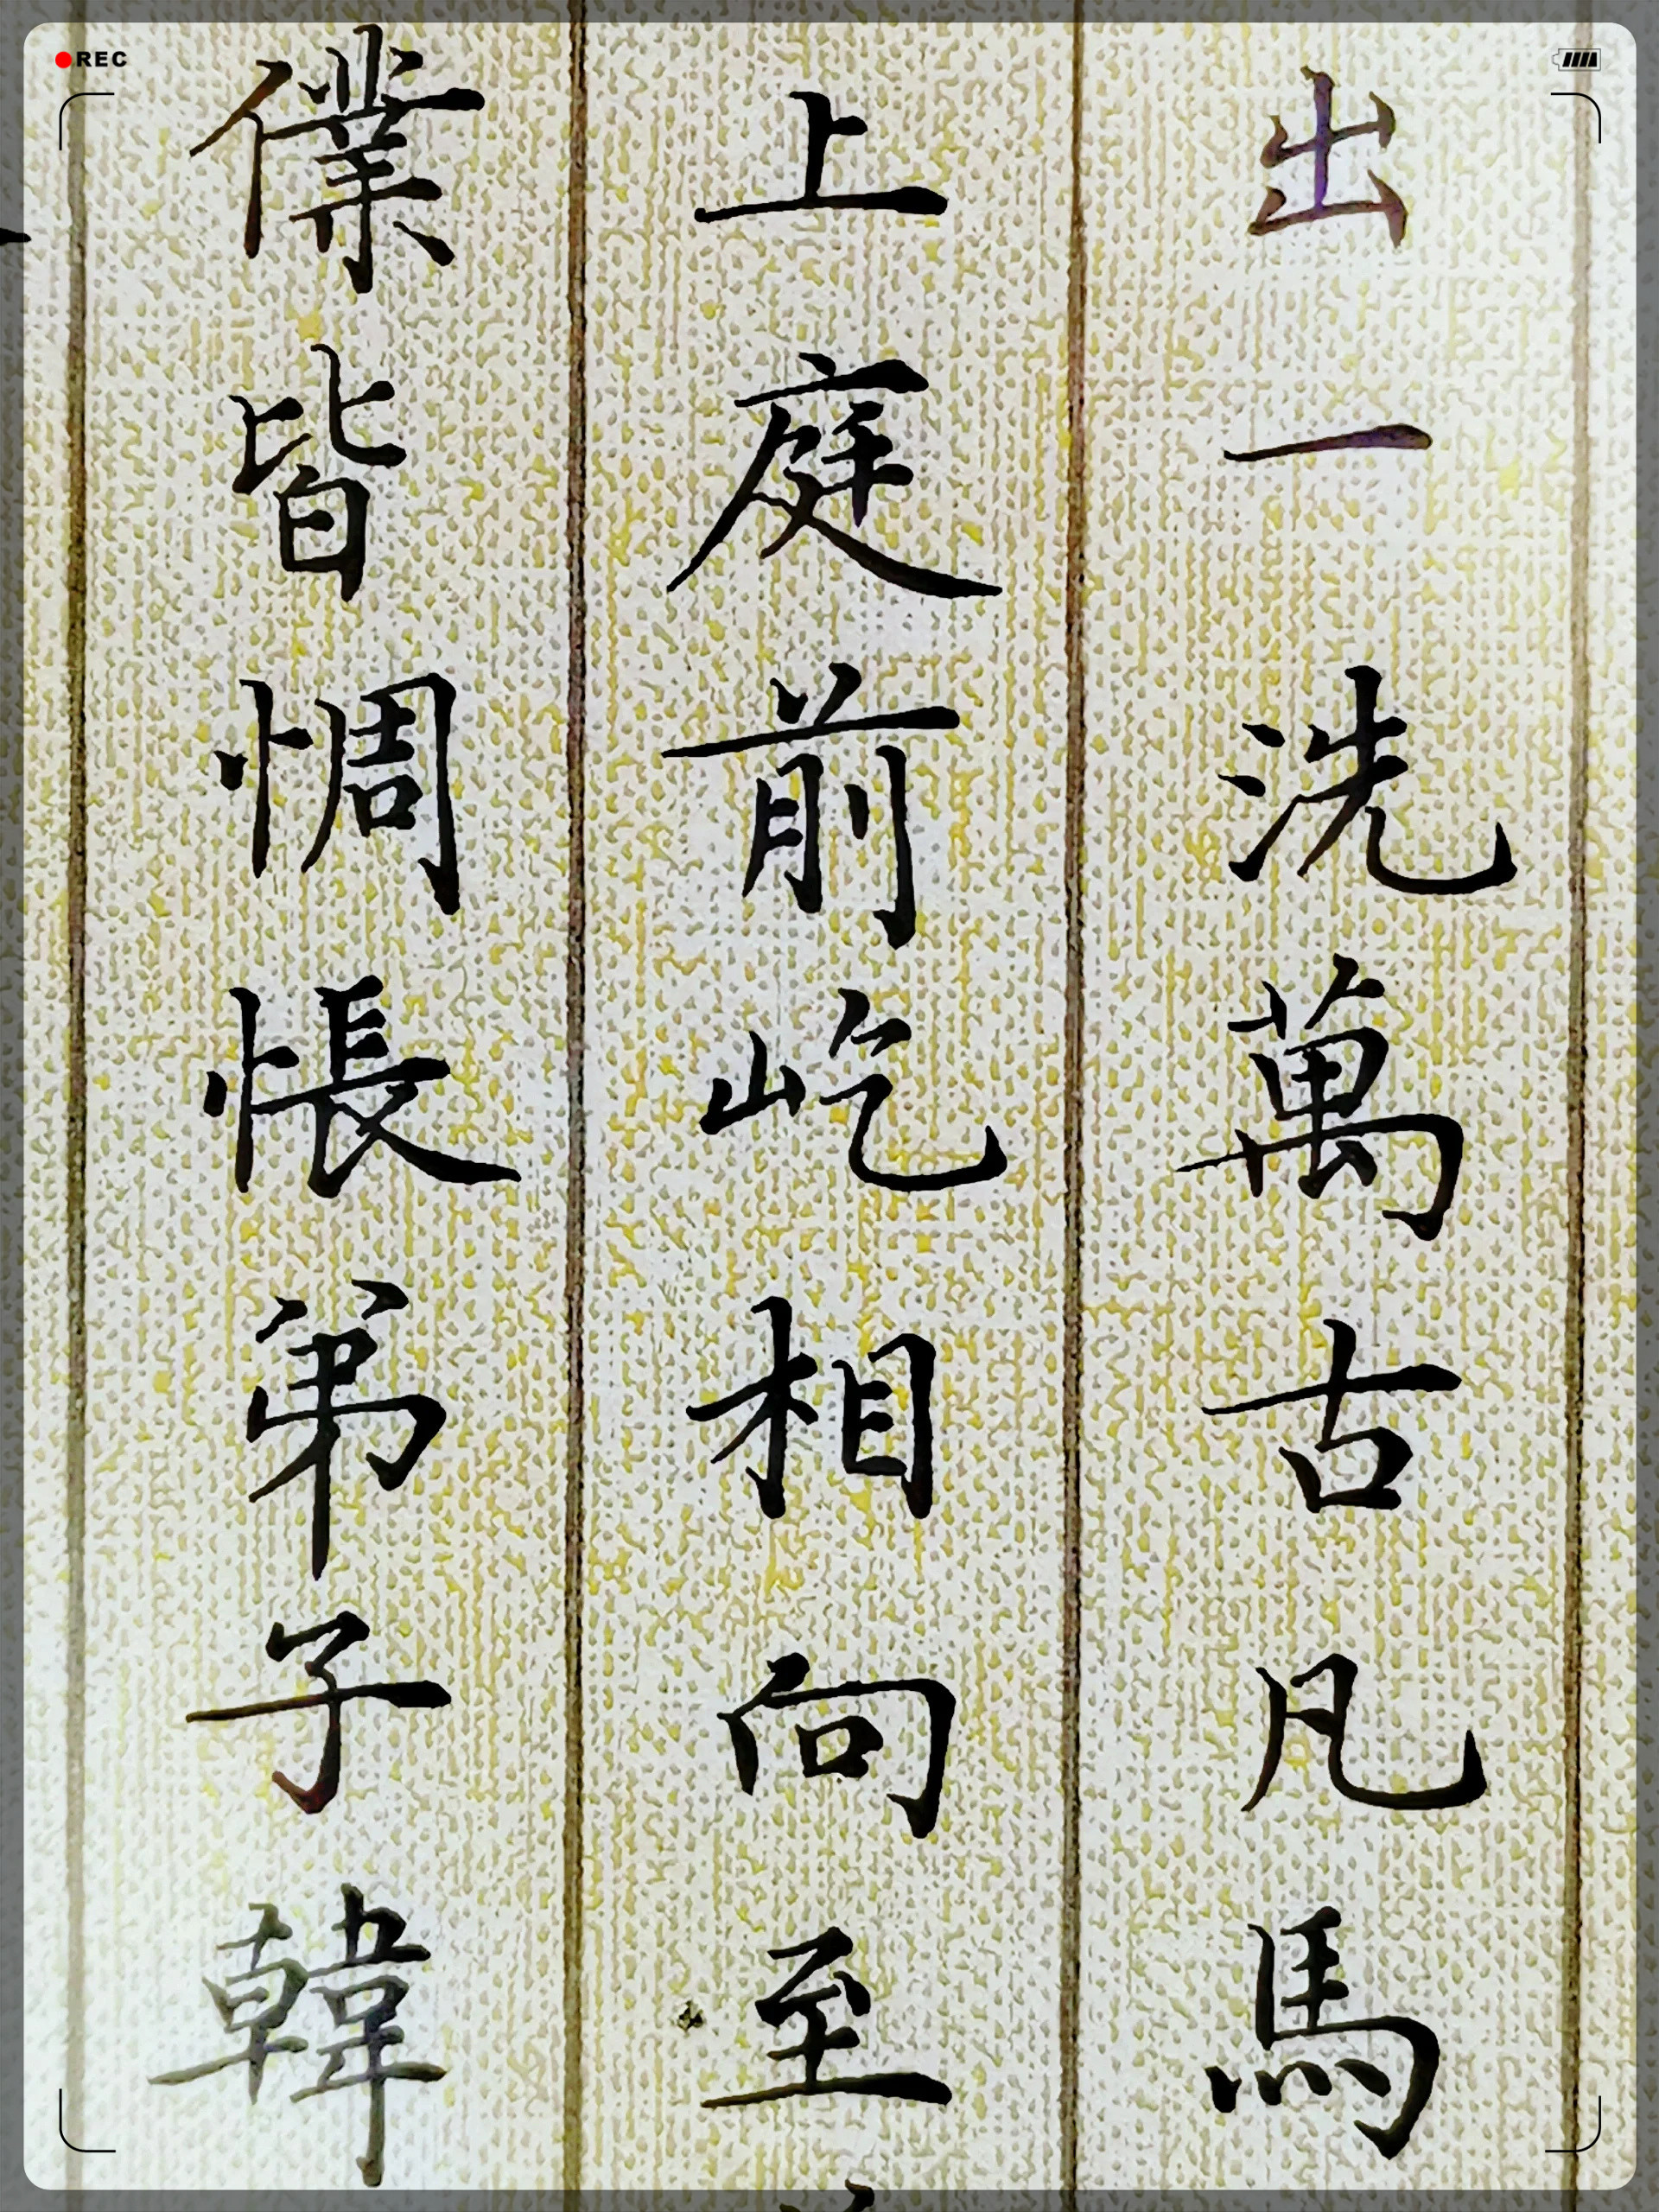 REC
出一洗萬古凡馬
上庭前屹相向至
僕皆惆悵弟子韓